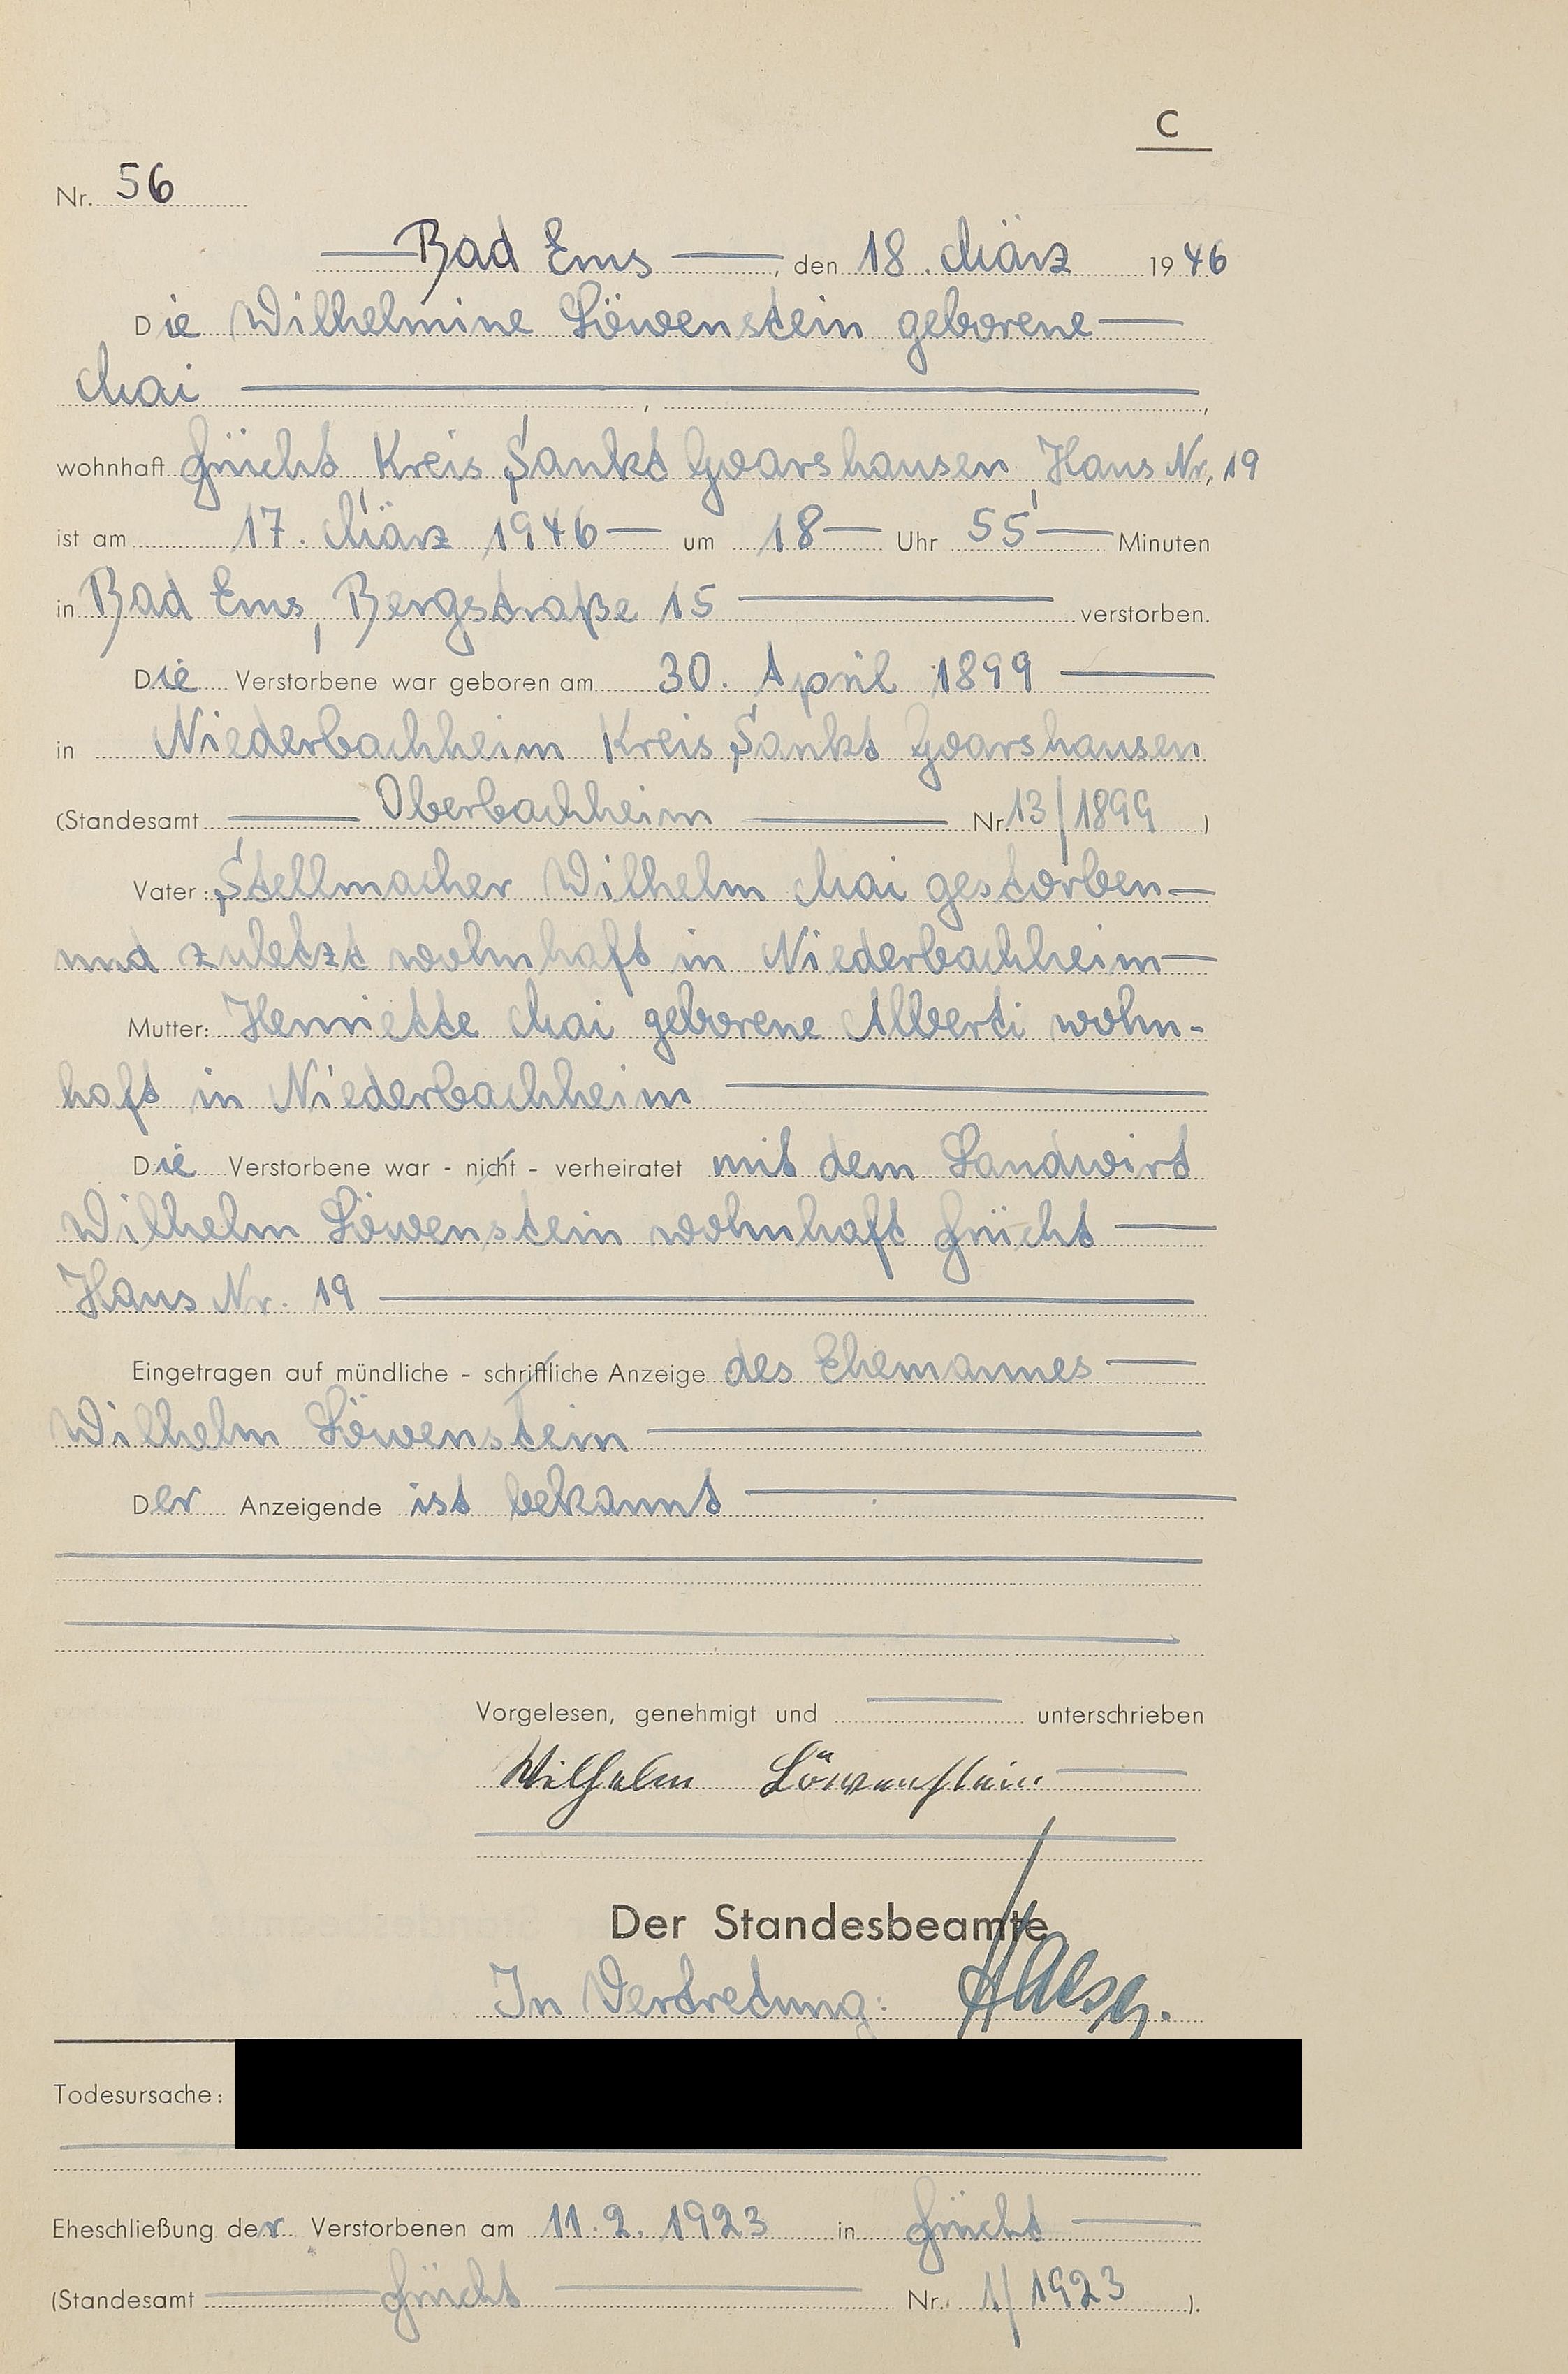 C
Nr. 56
Bad Ems, den 18. März 1946
Die Wilhelmine Löwenstein geborene
Mai
wohnhaft Frücht Kreis Sankt Goarshausen, Haus Nr. 19
ist am 17. März 1946 um 18 Uhr 55 Minuten
in Bad Ems, Bergstraße 15 verstorben.
Die Verstorbene war geboren am 30. April 1899
in Niederbachheim Kreis Sankt Goarshausen
(Standesamt Oberbachheim Nr. 13/1899)
Vater: Stellmacher Wilhelm Mai gestorben
und zuletzt wohnhaft in Niederbachheim
Mutter: Henriette Mai geborene Alberti wohn-
haft in Niederbachheim
Die Verstorbene war - nicht - verheiratet mit dem Landwirt
Wilhelm Löwenstein wohnhaft Frücht
Haus Nr. 19
Eingetragen auf mündliche - schriftliche Anzeige des Ehemannes
Wilhelm Löwenstein
Der Anzeigende ist bekannt
Vorgelesen, genehmigt und unterschrieben
Wilhelm Löwenstein
Der Standesbeamte
In Vertretung:
Todesursache:
Eheschließung der Verstorbenen am 11.2.1923 in Frücht
(Standesamt Frücht Nr. 1/1923).